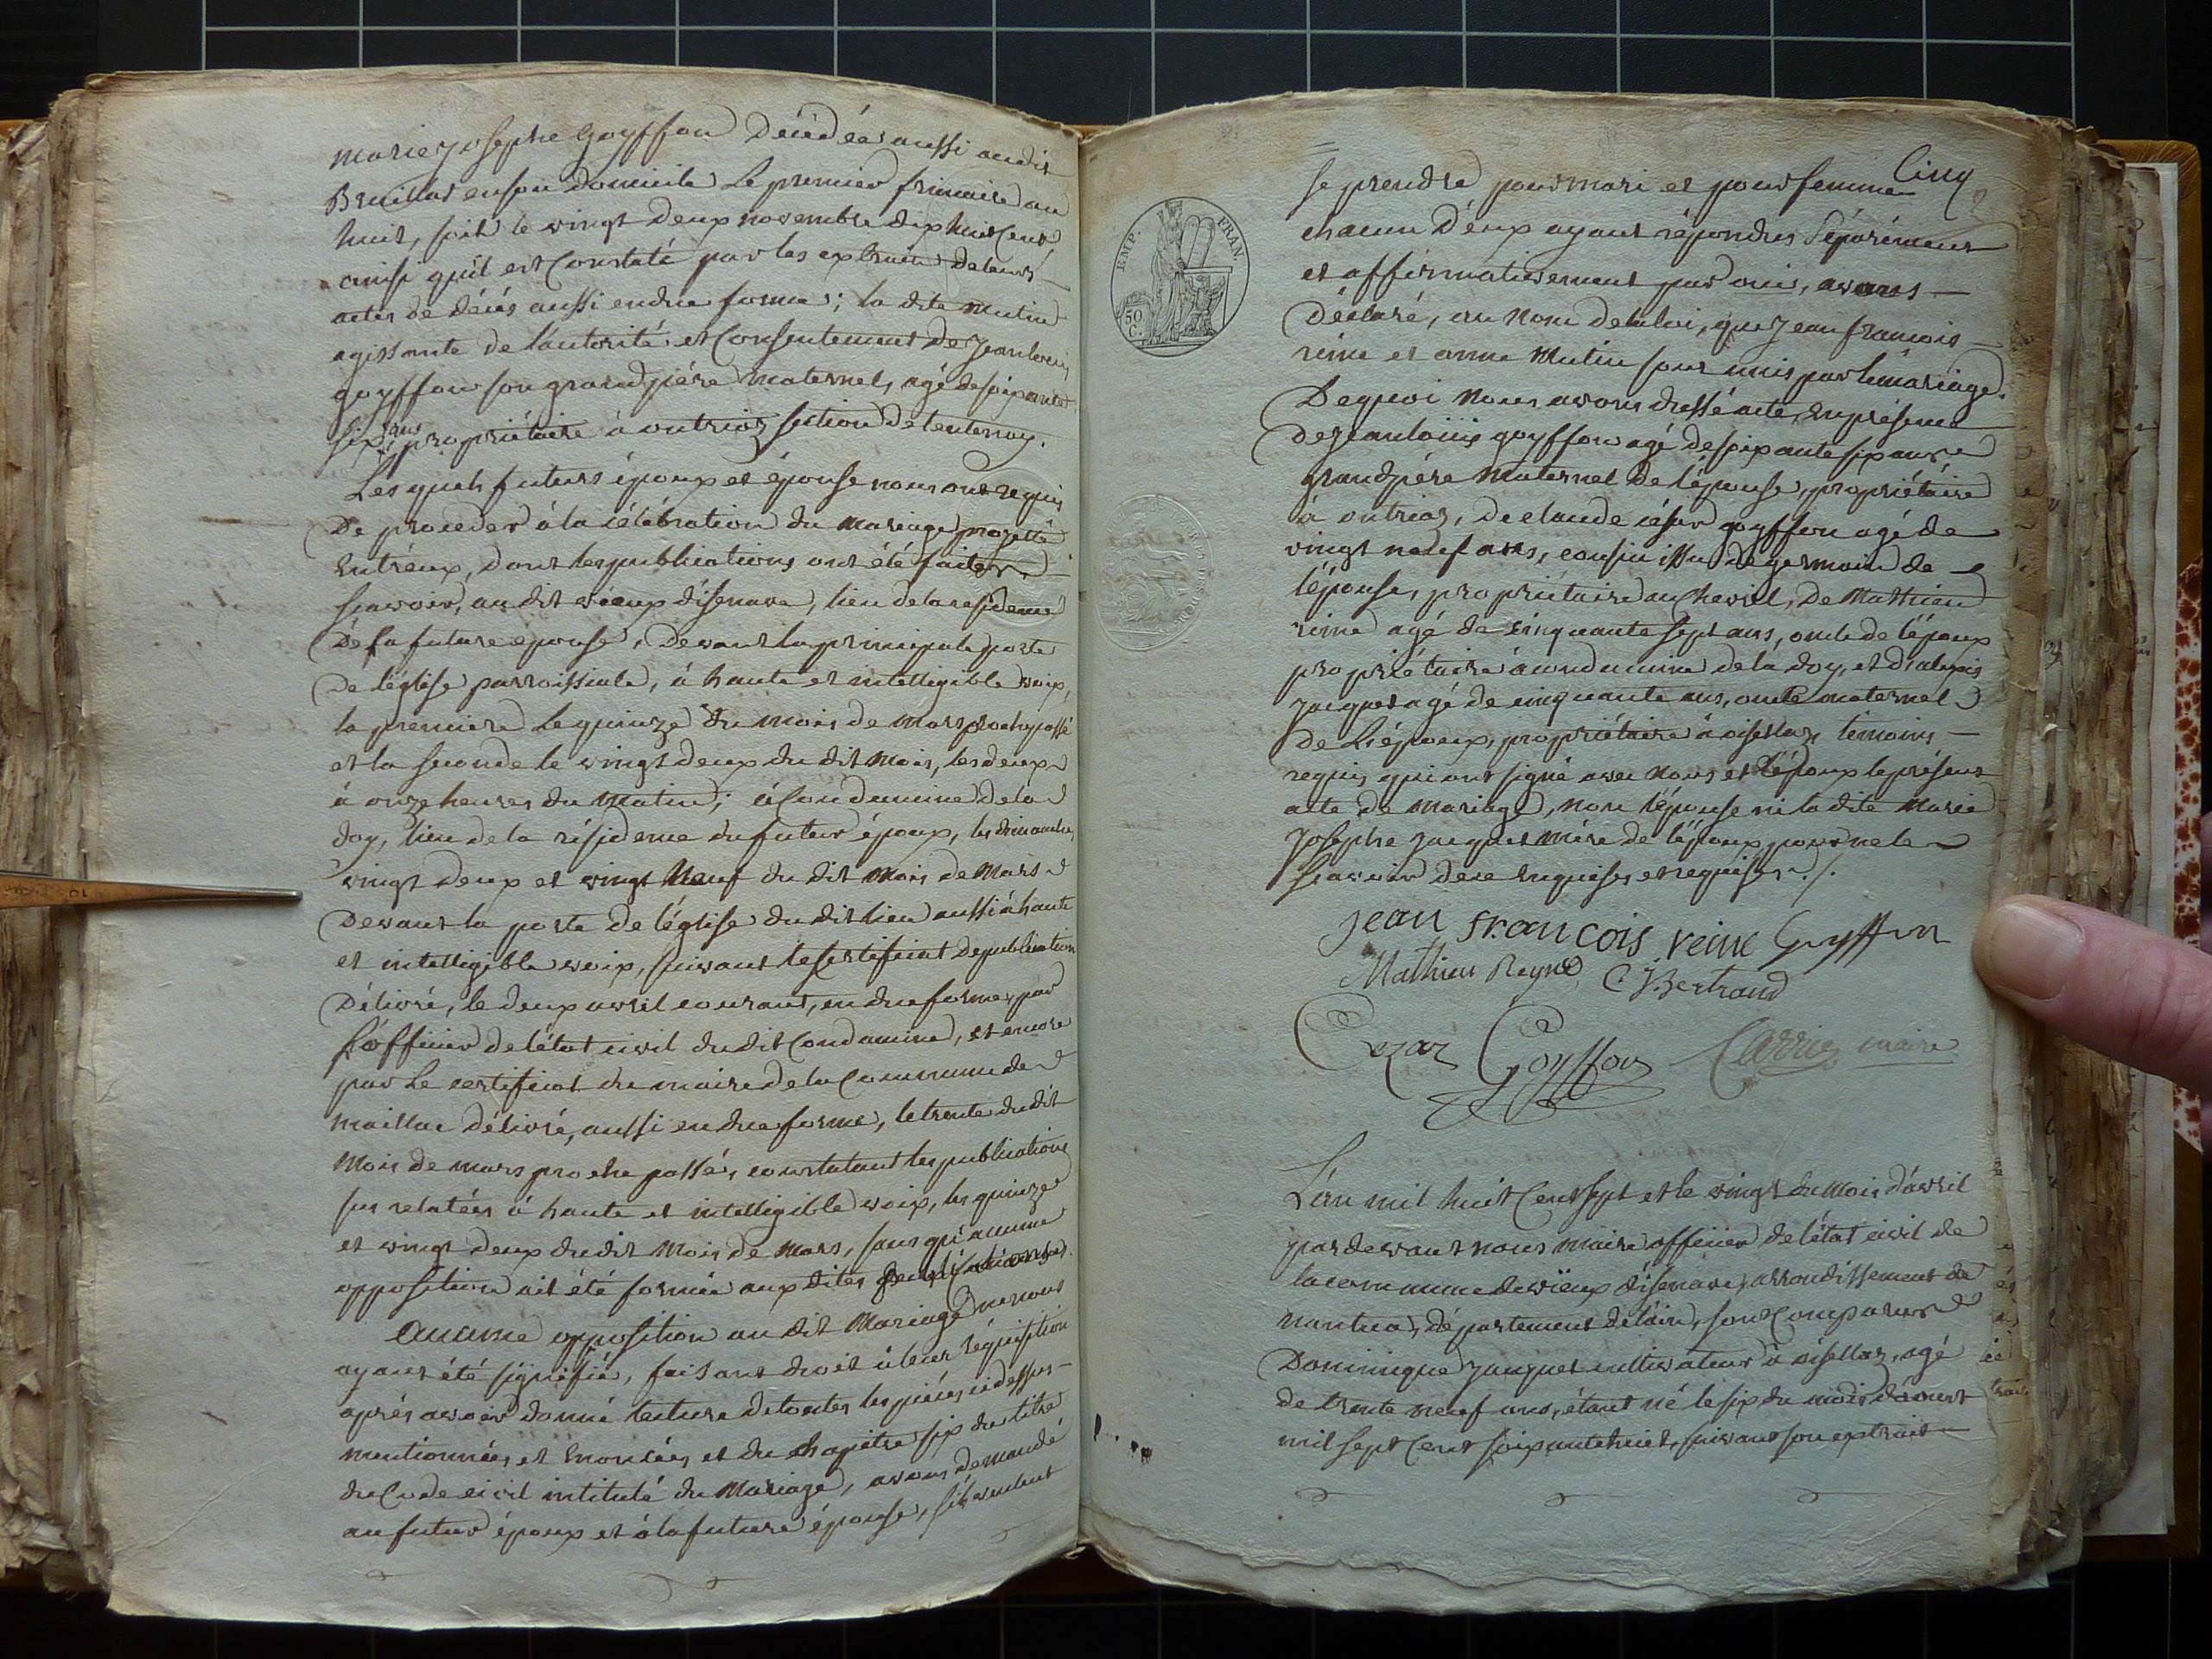 marie josephe goyffon décédée aussi audit
Breillat en son domicile le premier frimaire an
huit, soit le vingt deux novembre dix huit cent
ainsi qu'il est Constaté par les extraits de leurs
actes de décés aussi en due forme; la dite mutin
agissante de l'autorité et Consentement de Jean louis
goyffon son grand père maternel, agé de soixante
six ans propriétaire à outriaz section de lentenay.
Les quels futurs époux et épouse nous ont requis
De proceder à la célébration du mariage projetté
entr'eux, dont les publications ont été faites
sçavoir, au dit vieux d'isenave, lieu de la residence
De la future epouse, Devant la principale porte
De l'église parroissiale, à haute et intelligible voix,
la premiere le quinze du mois de mars proche passé
et la seconde le vingt deux du dit mois, les deux
à onze heures du matin; à Condamine de la
doy, lieu de la résidence du futur époux, les dimanches
vingt deux et vingt neuf du dit mois de mars
Devant la porte de l'église du dit lieu aussi à haute
et intelligible voix, suivant le certificat de publication
Délivré, le deux avril courant, en due forme, par
l'officier de l'état civil du dit Condamine, et encore
par le certificat du maire de la Commune de
maillac délivré, aussi en due forme, le trente du dit
mois de mars proche passé, constatant les publications
sus relatées à haute et intelligible voix, les quinze
et vingt deux du dit mois de mars, sans qu'aucune
opposition ait été formée aux dites publications.
Aucune opposition au dit mariage ne nous
ayant été signifiée, faisant droit à leur réquisition
après avoir donné lecture de toutes les pièces ci dessus
mentionnées et énoncées et du chapitre six du titre
du Code civil intitulé du mariage, avons demandé
au futur époux et à la future épouse, s'ils veulent
Cinq
se prendre pour mari et pour femme
chacun d'eux ayant répondu séparément
et affirmativement par oui, avons
Déclaré, au nom de la loi, que Jean francois
reine et anne Mutin sont unis par le mariage.
De quoi nous avons dressé acte, en présence
de Jean louis goyffon agé de soixante six ans
grand père maternel de l'épouse, propriétaire
à outriaz, de claude césar goyffon agé de
vingt neuf ans, cousin issu de germain de
l'épouse, propriétaire au Chevril, de Mathieu
reine agé de cinquante sept ans, oncle de l'époux
propriétaire à condamine de la doy, et d'alexis
Jacquet agé de cinquante ans, oncle maternel
de l'époux, propriétaire à oisellaz, témoins
requis qui ont signé avec nous et l'époux le présent
acte de mariage, non l'épouse ni la dite marie
Josephe jacquet mère de l'époux pour ne le
sçavoir de ce enquises et requises ./.
jean francois reine Goyffon
Mathieu Reyne C J Bertrand
Cezar Goyffon Carrier maire
L'an mil huit Cent sept et le vingt du mois d'avril
par devant nous maire officier de l'état civil de
la commune de vieux d'isenave, arrondissement de
nantua, département de l'ain, sont Comparus
Dominique jacquet cultivateur à oisellaz, agé
de trente neuf ans, étant né le six du mois d'aoust
mil sept Cent soixante huit, suivant son extrait
EMP. FRAN.
50
C.